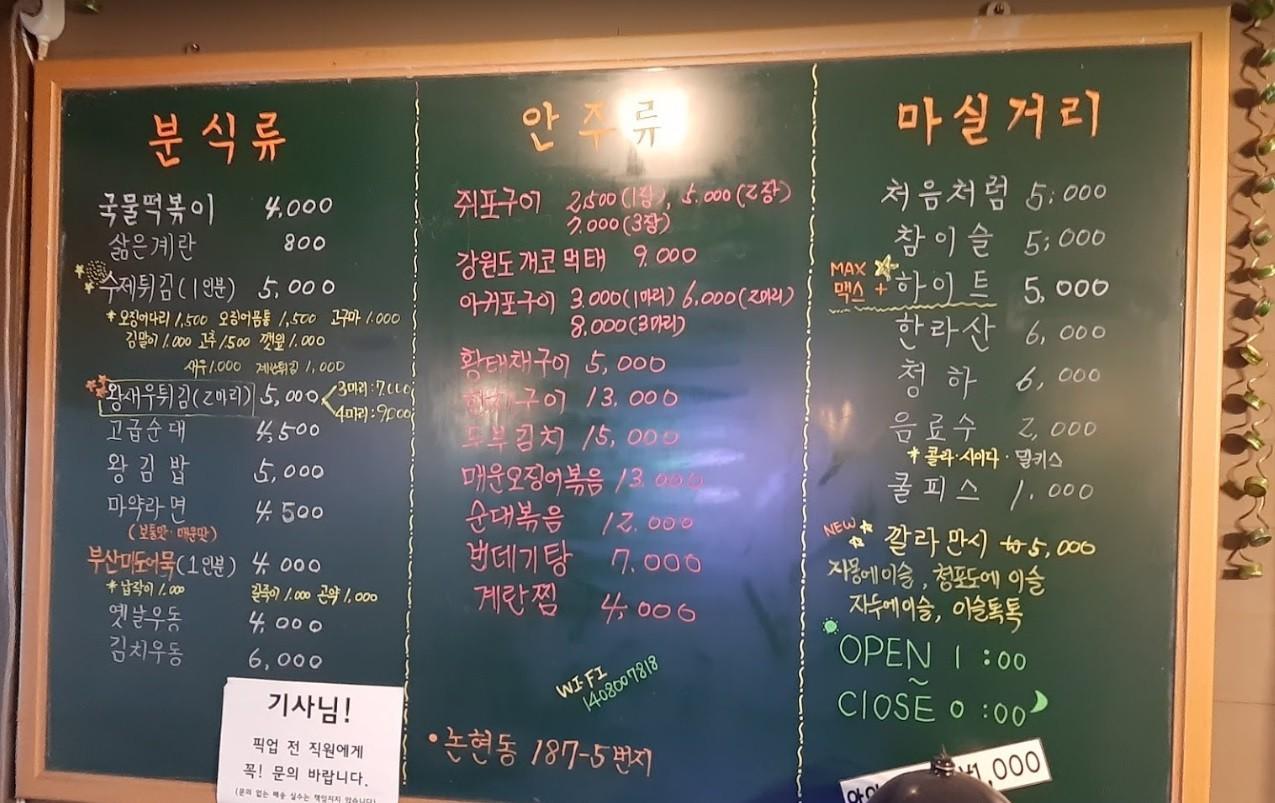 분식류
국물떡볶이 4,000
삶은계란 800
수제튀김(1인분) 5,000
*오징어다리 1,500 오징어몸통 1,500 고구마 1.000
김말이 1.000 고추 1.500 깻잎 1.000
새우 1.000 계란튀김 1,000
왕새우튀김(2마리) 5,000
3마리:7,000
4마리:9,000
고급순대 4,500
왕김밥 5,000
마약라면 4.500
(보통맛·매운맛)
부산미도어묵(1인분) 4.000
*납작이 1.000 길죽이 1.000 곤약 1,000
옛날우동 4,000
김치우동 6,000
기사님!
픽업 전 직원에게
꼭! 문의 바랍니다.
(문의 없는 배송 실수는 책임지지 않습니다)
안주류
쥐포구이 2,500(1장), 5.000(2장)
7.000(3장)
강원도개코먹태 9.000
아귀포구이 3.000(1마리) 6,000(2마리)
8,000(3마리)
황태채구이 5,000
구이 13.000
두부김치 15,000
매운오징어볶음 13.000
순대볶음 12.000
번데기탕 7.000
계란찜 4,000
WI-FI
1408007818
•논현동 187-5번지
마실거리
처음처럼 5:000
참이슬 5;000
MAX
맥스 + 하이트 5,000
한라산 6,000
청하 6,000
음료수 2,000
*콜라·사이다·밀키스
쿨피스 1.000
NEW 깔라만시 ₩5,000
자몽에이슬, 청포도에이슬
자두에이슬, 이슬톡톡
OPEN 1:00
~
ClOSE 0:00
1,000